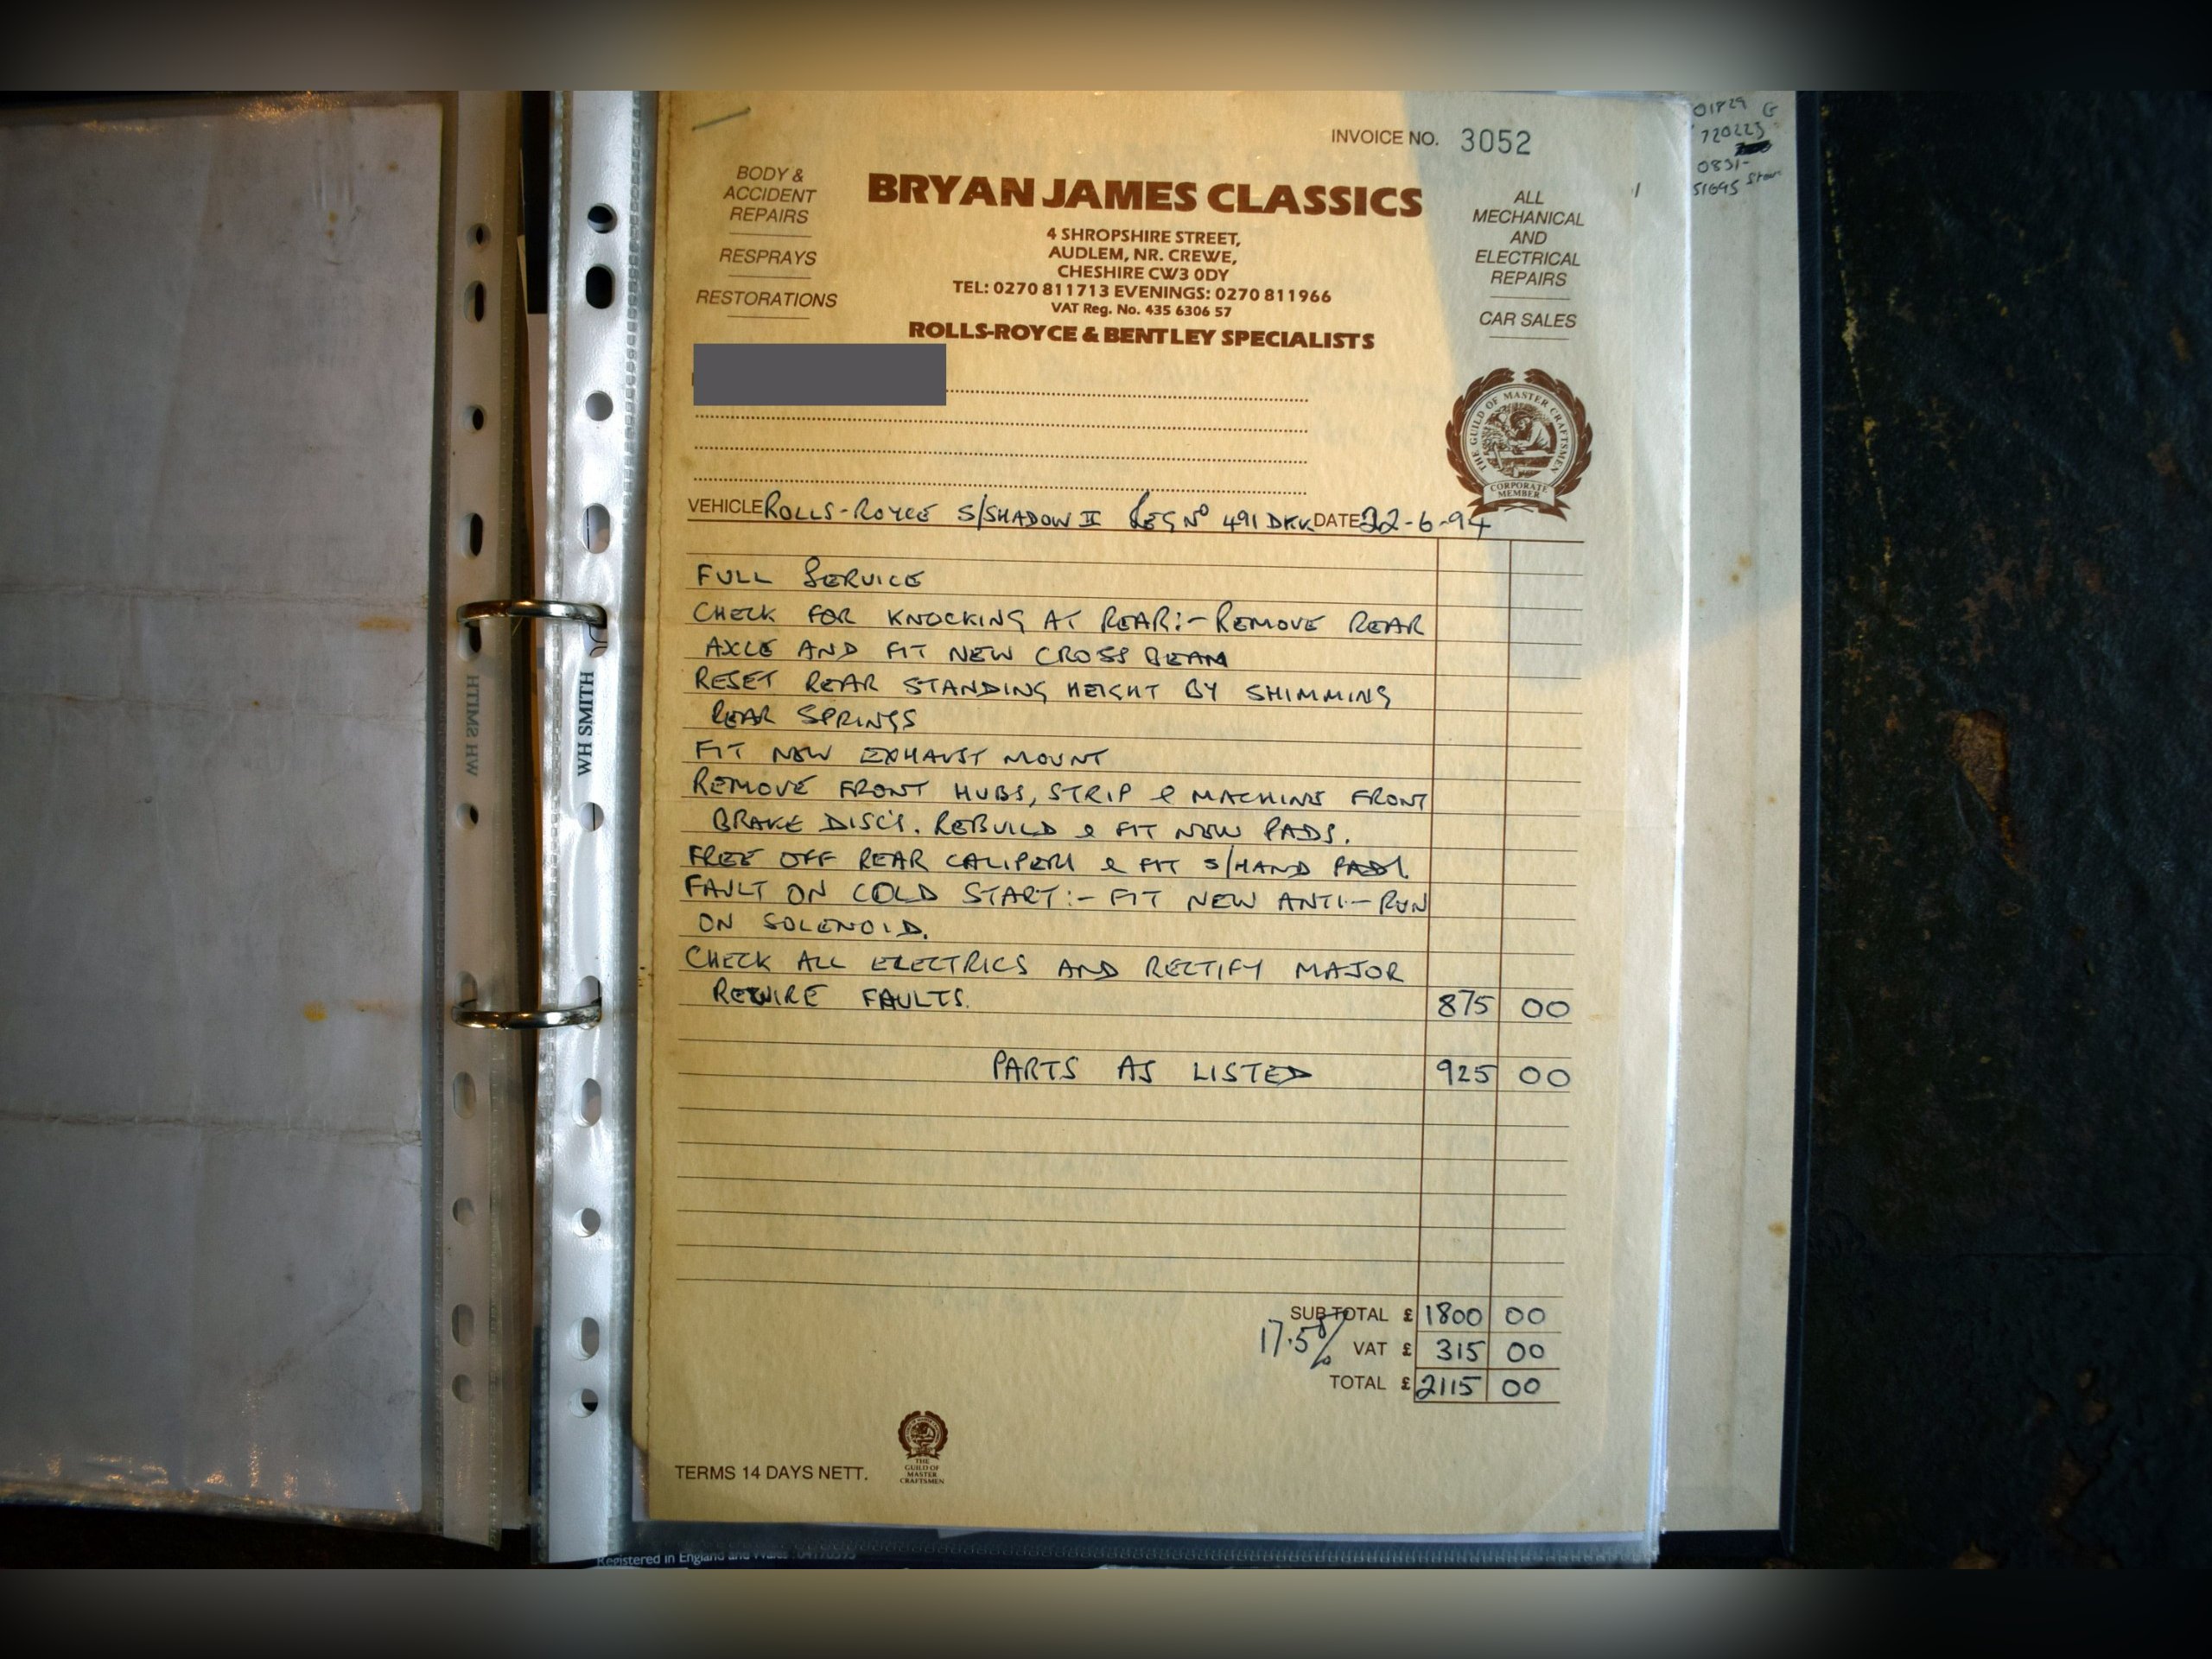 01829 G
720223
0831-
51695
INVOICE NO. 3052
BODY &
ACCIDENT
REPAIRS
RESPRAYS
RESTORATIONS
BRYAN JAMES CLASSICS
4 SHROPSHIRE STREET,
AUDLEM, NR. CREWE,
CHESHIRE CW3 0DY
TEL: 0270 811713 EVENINGS: 0270 811966
VAT Reg. No. 435 6306 57
ROLLS-ROYCE & BENTLEY SPECIALISTS
ALL
MECHANICAL
AND
ELECTRICAL
REPAIRS
CAR SALES
THE GUILD OF MASTER CRAFTSMEN
CORPORATE
MEMBER
VEHICLE ROLLS-ROYCE S/SHADOW II REG Nº 491 DKK DATE 22-6-94
FULL SERVICE
CHECK FOR KNOCKING AT REAR:- REMOVE REAR
AXLE AND FIT NEW CROSS BEAM
RESET REAR STANDING HEIGHT BY SHIMMING
REAR SPRINGS
FIT NEW EXHAUST MOUNT
REMOVE FRONT HUBS, STRIP & MACHINE FRONT
BRAKE DISC'S. REBUILD & FIT NEW PADS.
FREE OFF REAR CALIPERS & FIT S/HAND PADS.
FAULT ON COLD START:- FIT NEW ANTI-RUN
ON SOLENOID.
CHECK ALL ELECTRICS AND RECTIFY MAJOR
REWIRE FAULTS. 875 00
PARTS AS LISTED 925 00
SUB TOTAL £ 1800 00
17.5% VAT £ 315 00
TOTAL £ 2115 00
THE
GUILD OF
MASTER
CRAFTSMEN
TERMS 14 DAYS NETT.
WH SMITH
WH SMITH
Registered in England and Wales